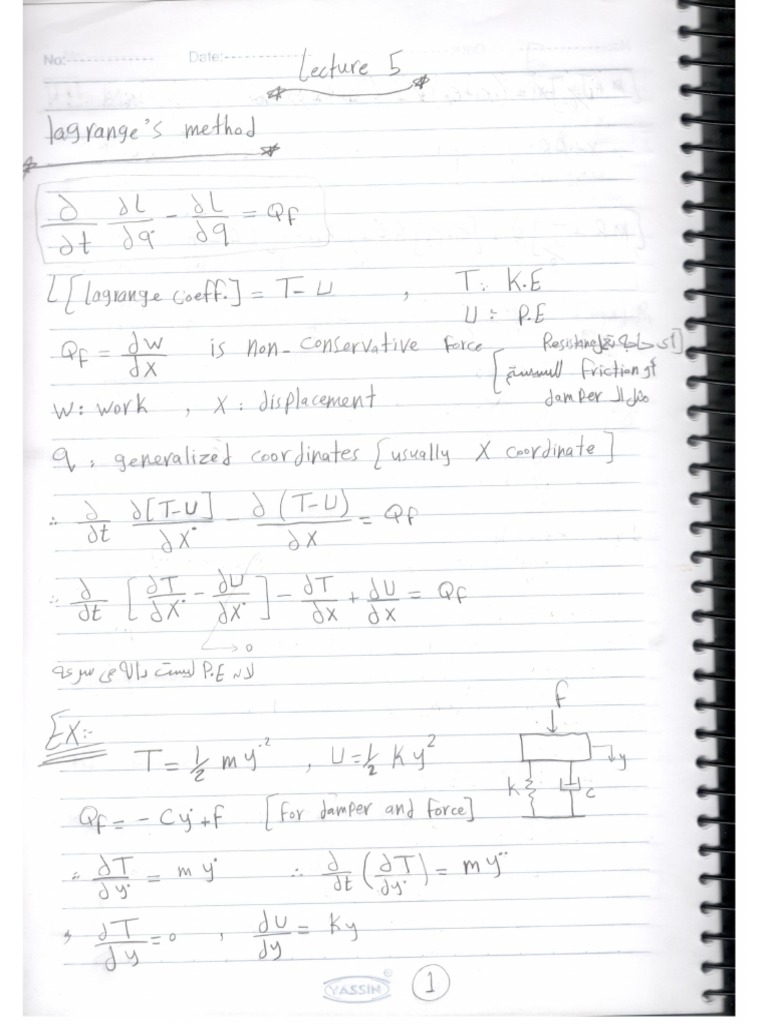 No:
Date:
Lecture 5
lagrange's method
∂/∂t ∂L/∂q̇ - ∂L/∂q = Qf
L [lagrange coeff.] = T-U , T: K.E
U: P.E
Qf = ∂W/∂X is non-conservative force
[أى حاجة Resisting
أو friction
مثل الـ damper
W: work , X: displacement
q: generalized coordinates [usually X coordinate]
∴ ∂/∂t ∂[T-U]/∂Ẋ - ∂(T-U)/∂X = Qf
∴ ∂/∂t [∂T/∂Ẋ - ∂U/∂Ẋ] - ∂T/∂X + ∂U/∂X = Qf
→ 0
لان P.E ليست دالة فى سرعة
EX:-
T = 1/2 m ẏ² , U = 1/2 K y²
f
y
k
c
Qf = - Cẏ + f [for damper and force]
∴ ∂T/∂ẏ = m ẏ ∴ ∂/∂t (∂T/∂ẏ) = m ÿ
, ∂T/∂y = 0 , ∂U/∂y = Ky
YASSIN
1